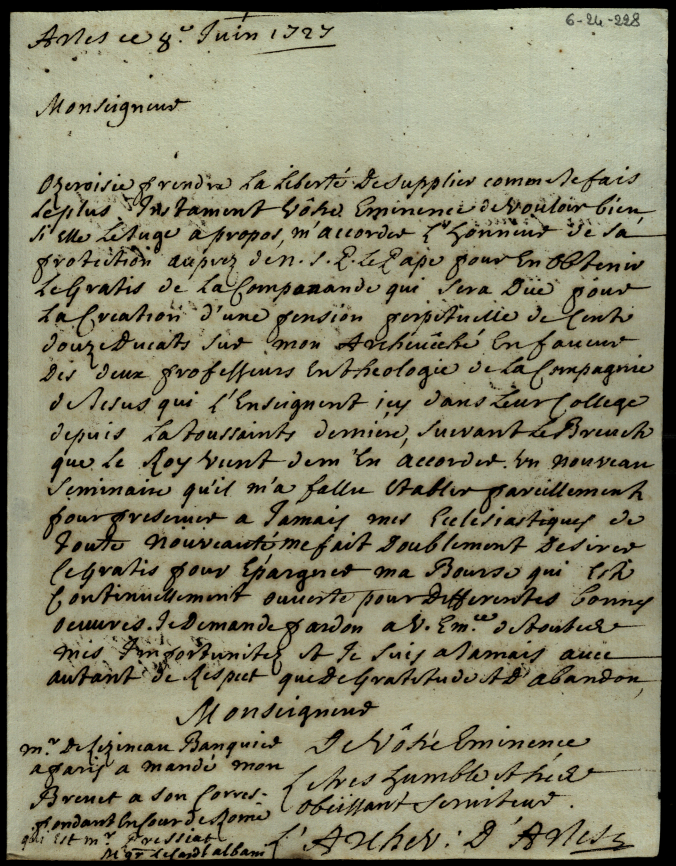 6-24-228
Arles ce 8.e Juin 1727
Monseigneur
Ozeroisie prendre La Liberté De supplier comme Je fais
Le plus Instament Vôtre Eminence de Vouloir bien
si elle Le Juge a propos, m'accorder L'honneur de sa
protection auprez de n. s. P. Le Pape pour En obtenir
Le Gratis de La Componande qui sera Düe pour
La Creation d'une pension perpetuelle de Cent
douze Ducats sur mon Archevêché En faveur
Des deux professeurs En theologie de La Compagnie
de Jesus qui L'Enseignent icy dans Leur College
depuis La toussaints derniere, suivant Le Brevet
que Le Roy Vient de m'En accorder. Un nouveau
seminaire qu'il m'a fallu Etablir pareillement
pour preserver a Jamais mes Ecclesiastiques de
toute nouveauté me fait Doublement Desirer
Le Gratis pour Epargner ma Bourse qui Est
Continuellement ouverte pour Differentes bonnes
oeuvres. Je Demande pardon a V. Em.ce de toutes
mes Importunites Et Je suis a Jamais avec
autant de Respect que De Gratitude Et D'abandon,
Monseigneur
De Vôtre Eminence
Le tres humble Et tres
obeissant serviteur.
L'Archev: D'Arles
m.r De Lezineau Banquier
a paris a mandé mon
Brevet a son Corres-
pondant En Cour de Rome
qui Est m.r pressiat
M.gr Le Card. albani